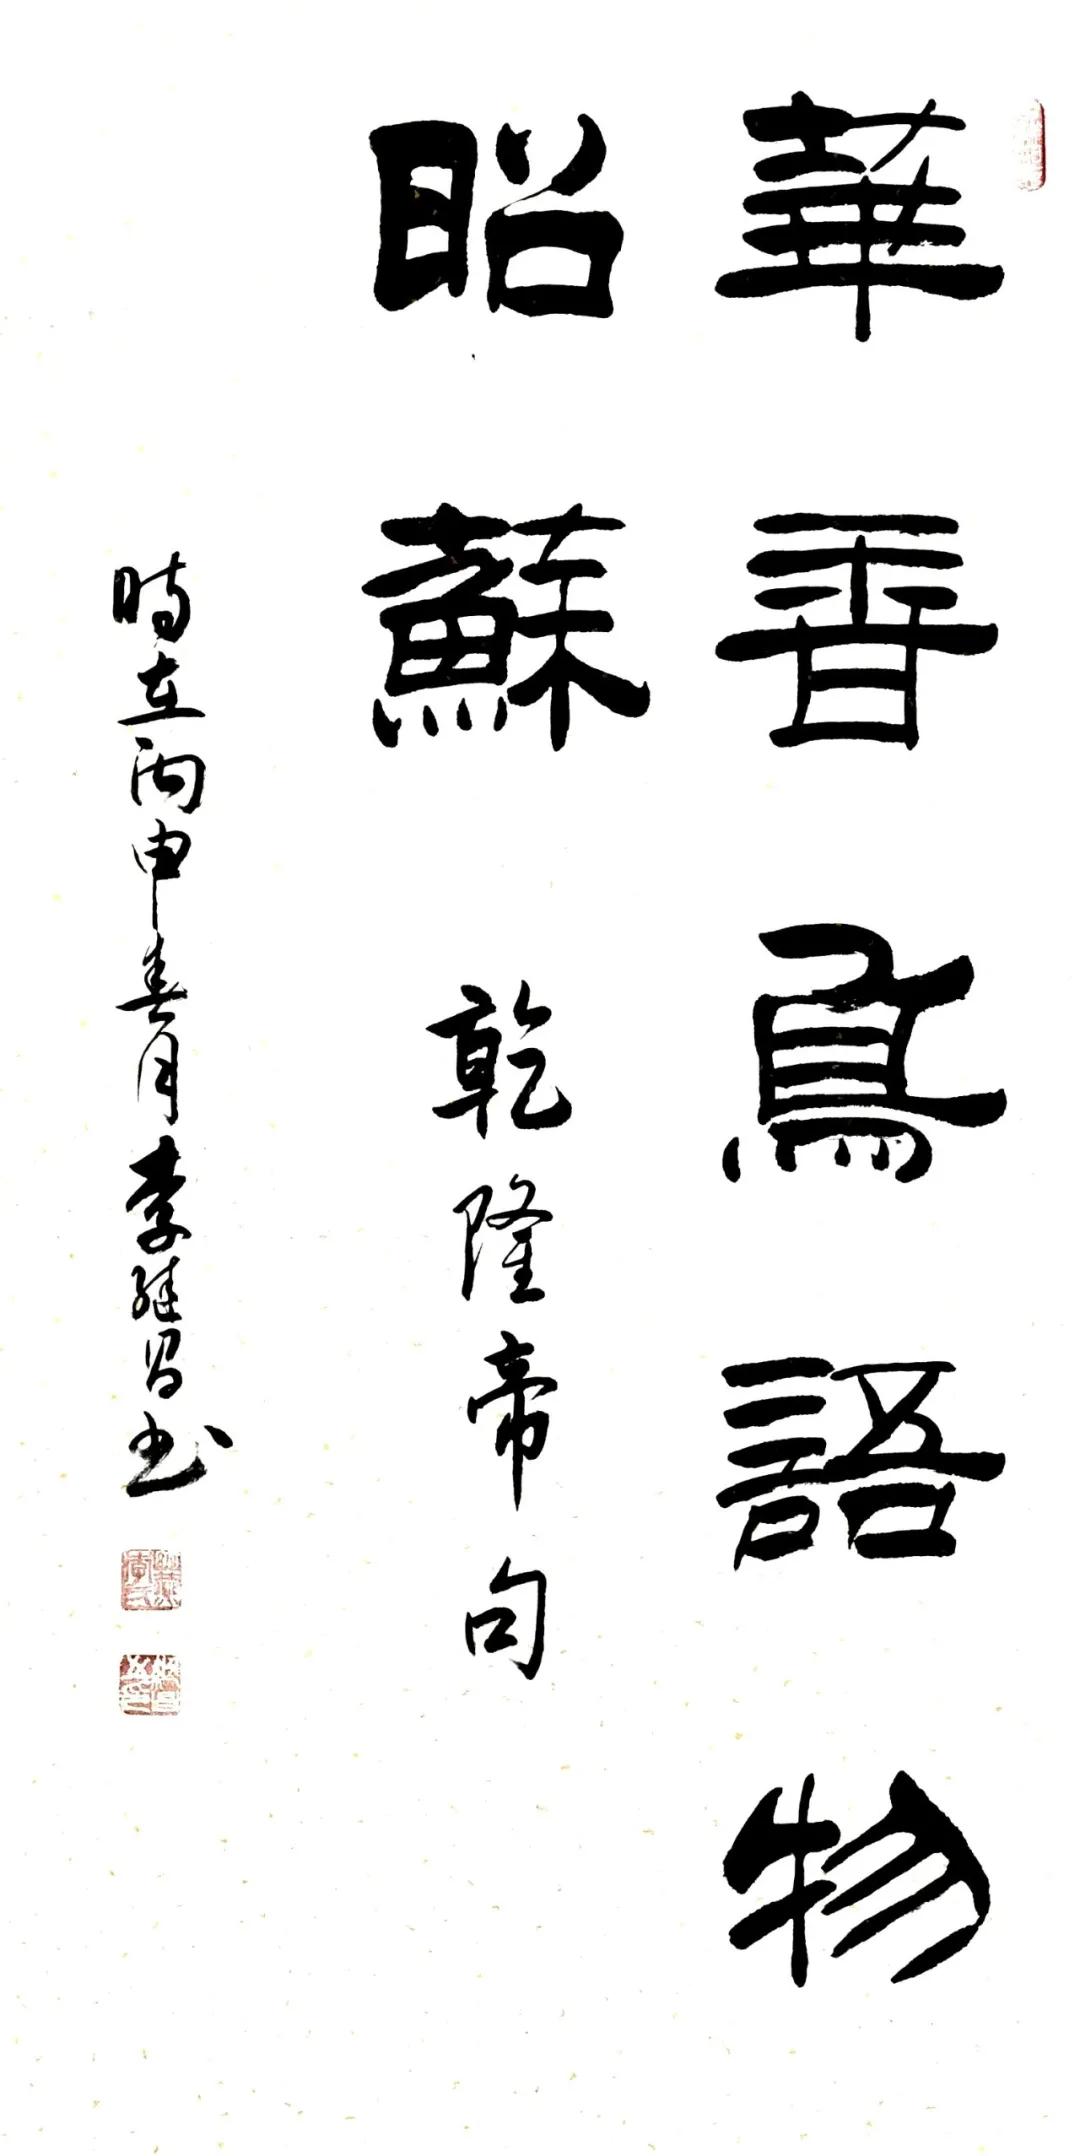 華香鳥語物
昭蘇
乾隆帝句
時在丙申春月李继昌书